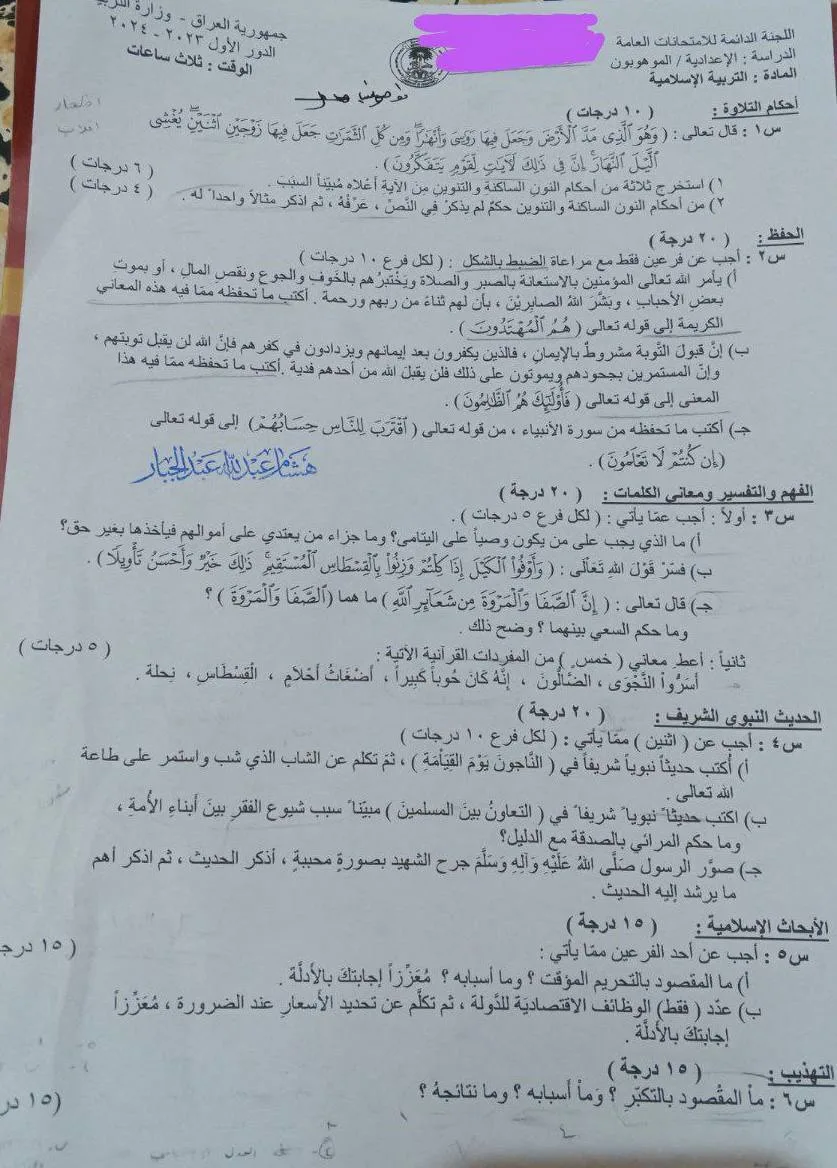 اللجنة الدائمة للامتحانات العامة
الدراسة : الإعدادية / الموهوبون
المادة : التربية الإسلامية
جمهورية العراق - وزارة التربية
الدور الأول ٢٠٢٣ - ٢٠٢٤
الوقت : ثلاث ساعات
أحكام التلاوة : ( ١٠ درجات )
س١ : قال تعالى : ( وَهُوَ ٱلَّذِى مَدَّ ٱلْأَرْضَ وَجَعَلَ فِيهَا رَوَٰسِىَ وَأَنْهَٰرًا ۖ وَمِن كُلِّ ٱلثَّمَرَٰتِ جَعَلَ فِيهَا زَوْجَيْنِ ٱثْنَيْنِ ۖ يُغْشِى
ٱلَّيْلَ ٱلنَّهَارَ ۚ إِنَّ فِى ذَٰلِكَ لَآيَاتٍ لِقَوْمٍ يَتَفَكَّرُونَ ) .
١) استخرج ثلاثة من أحكام النون الساكنة والتنوين من الآية أعلاه مُبيّناً السبَبَ . ( ٦ درجات )
٢) من أحكام النون الساكنة والتنوين حكمٌ لم يذكرْ في النَّصّ ، عَرّفْهُ ، ثم اذكر مثالاً واحداً له . ( ٤ درجات )
الحفظ : ( ٢٠ درجة )
س٢ : أجب عن فرعين فقط مع مراعاة الضبط بالشكل : ( لكل فرع ١٠ درجات )
أ) يأمر الله تعالى المؤمنين بالاستعانة بالصبر والصلاة ويَخْتبرُهم بالخَوف والجوع ونقص المال ، أو بموتِ
بعض الأحباب ، وبَشَّرَ اللهُ الصابرِيْنَ ، بأن لهم ثناءً من ربهم ورحمة . أكتب ما تحفظه ممّا فيه هذه المعاني
الكريمة إلى قوله تعالى ( هُمُ ٱلْمُهْتَدُونَ ) .
ب) إنَّ قبولَ التَّوبة مشروطٌ بالإيمانِ ، فالذين يكفرون بعد إيمانهم ويزدادون في كفرهم فإنَّ الله لن يقبل توبتهم ،
وإنّ المستمرين بجحودهم ويموتون على ذلك فلن يقبلَ الله من أحدهم فدية . أكتب ما تحفظه ممّا فيه هذا
المعنى إلى قوله تعالى ( فَأُوْلَٰٓئِكَ هُمُ ٱلظَّالِمُونَ ) .
جـ) أكتب ما تحفظه من سورة الأنبياء ، من قوله تعالى ( ٱقْتَرَبَ لِلنَّاسِ حِسَابُهُمْ ) إلى قوله تعالى
( إِن كُنتُمْ لَا تَعْلَمُونَ ) .
هشام عبدالله عبدالجبار
الفهم والتفسير ومعاني الكلمات : ( ٢٠ درجة )
س٣ : أولاً : أجب عمّا يأتي : ( لكل فرع ٥ درجات ) .
أ) ما الذي يجب على من يكون وصياً على اليتامى؟ وما جزاء من يعتدي على أموالهم فيأخذها بغير حق؟
ب) فسّرْ قَوْلَ اللهِ تَعَالَى : ( وَأَوْفُوا۟ ٱلْكَيْلَ إِذَا كِلْتُمْ وَزِنُوا۟ بِٱلْقِسْطَاسِ ٱلْمُسْتَقِيمِ ۚ ذَٰلِكَ خَيْرٌ وَأَحْسَنُ تَأْوِيلًا ) .
جـ) قال تعالى : ( إِنَّ ٱلصَّفَا وَٱلْمَرْوَةَ مِن شَعَآئِرِ ٱللَّهِ ) ما هما ( ٱلصَّفَا وَٱلْمَرْوَةَ ) ؟
وما حكم السعي بينهما ؟ وضح ذلك .
ثانياً : أعط معاني ( خمس ) من المفردات القرآنية الآتية : ( ٥ درجات )
أَسَرُّوا۟ النَّجْوَى ، الضَّالُّونَ ، إِنَّهُ كَانَ حُوباً كَبِيراً ، أَضْغَاثُ أَحْلَامٍ ، الْقِسْطَاسِ ، نِحلة .
الحديث النبوي الشريف : ( ٢٠ درجة )
س٤ : أجب عن ( اثنين ) ممّا يأتي : ( لكل فرع ١٠ درجات )
أ) أكتب حديثاً نبوياً شريفاً في ( النَّاجونَ يَوْمَ القِيَامَةِ ) ، ثمَ تكلم عن الشاب الذي شب واستمر على طاعة
الله تعالى .
ب) اكتب حديثاً نبوياً شريفاً في ( التعاونُ بينَ المسلمين ) مبيّناً سبب شيوع الفقر بينَ أبناءِ الأُمةِ ،
وما حكم المرائي بالصدقة مع الدليل؟
جـ) صوَّر الرسول صَلَّى اللهُ عَلَيْهِ وَآلِهِ وَسَلَّمَ جرح الشهيد بصورةٍ محببةٍ ، أذكر الحديث ، ثم اذكر أهم
ما يرشد إليه الحديث .
الأبحاث الإسلامية : ( ١٥ درجة )
س٥ : أجب عن أحد الفرعين ممّا يأتي : ( ١٥ درجة
أ) ما المقصود بالتحريم المؤقت ؟ وما أسبابه ؟ مُعَزِّزاً إجابتكَ بالأدلَّة .
ب) عدّد ( فقط ) الوظائف الاقتصاديَة للدَّولة ، ثم تكلَّم عن تحديد الأسعارِ عند الضرورة ، مُعَزِّزاً
إجابتكَ بالأدلَّة .
التهذيب : ( ١٥ درجة )
س٦ : ما المقْصود بالتكبّرِ ؟ وَمَا أسبابه ؟ وما نتائجهُ ؟ ( ١٥ در
٤